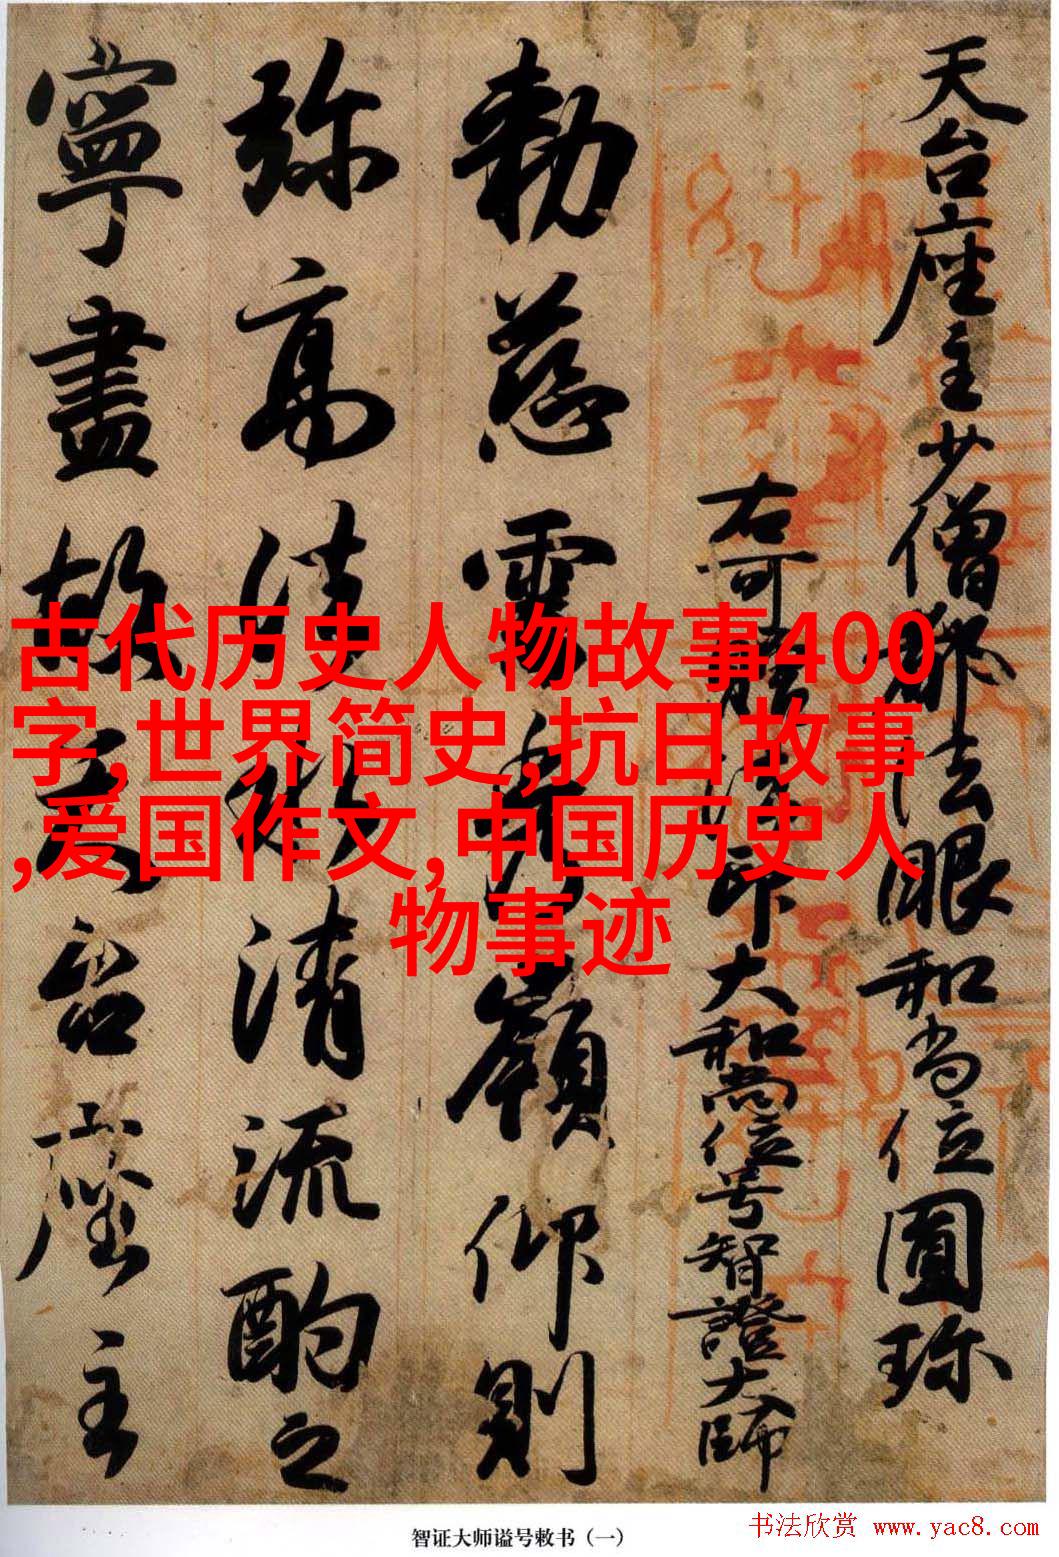 天台座主少僧都法眼和尚位圓珎
右可贈法印大和尚位号智證大師
勅慈雲秀嶺仰則
弥高法水清流酌之
寧盡故天台座主
古代历史人物故事400
字,世界简史,抗日故事
,爱国作文,中国历史人
物事迹
智证大师谥号敕书（一）
书法欣赏 www.yac8.com